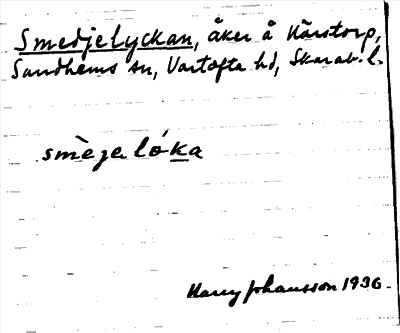 Smedjelyckan, åker å Kårstorp,
Sandhems sn, Vartofta hd, Skarab. l.
smèjeló̱ka
Harry Johansson 1936.